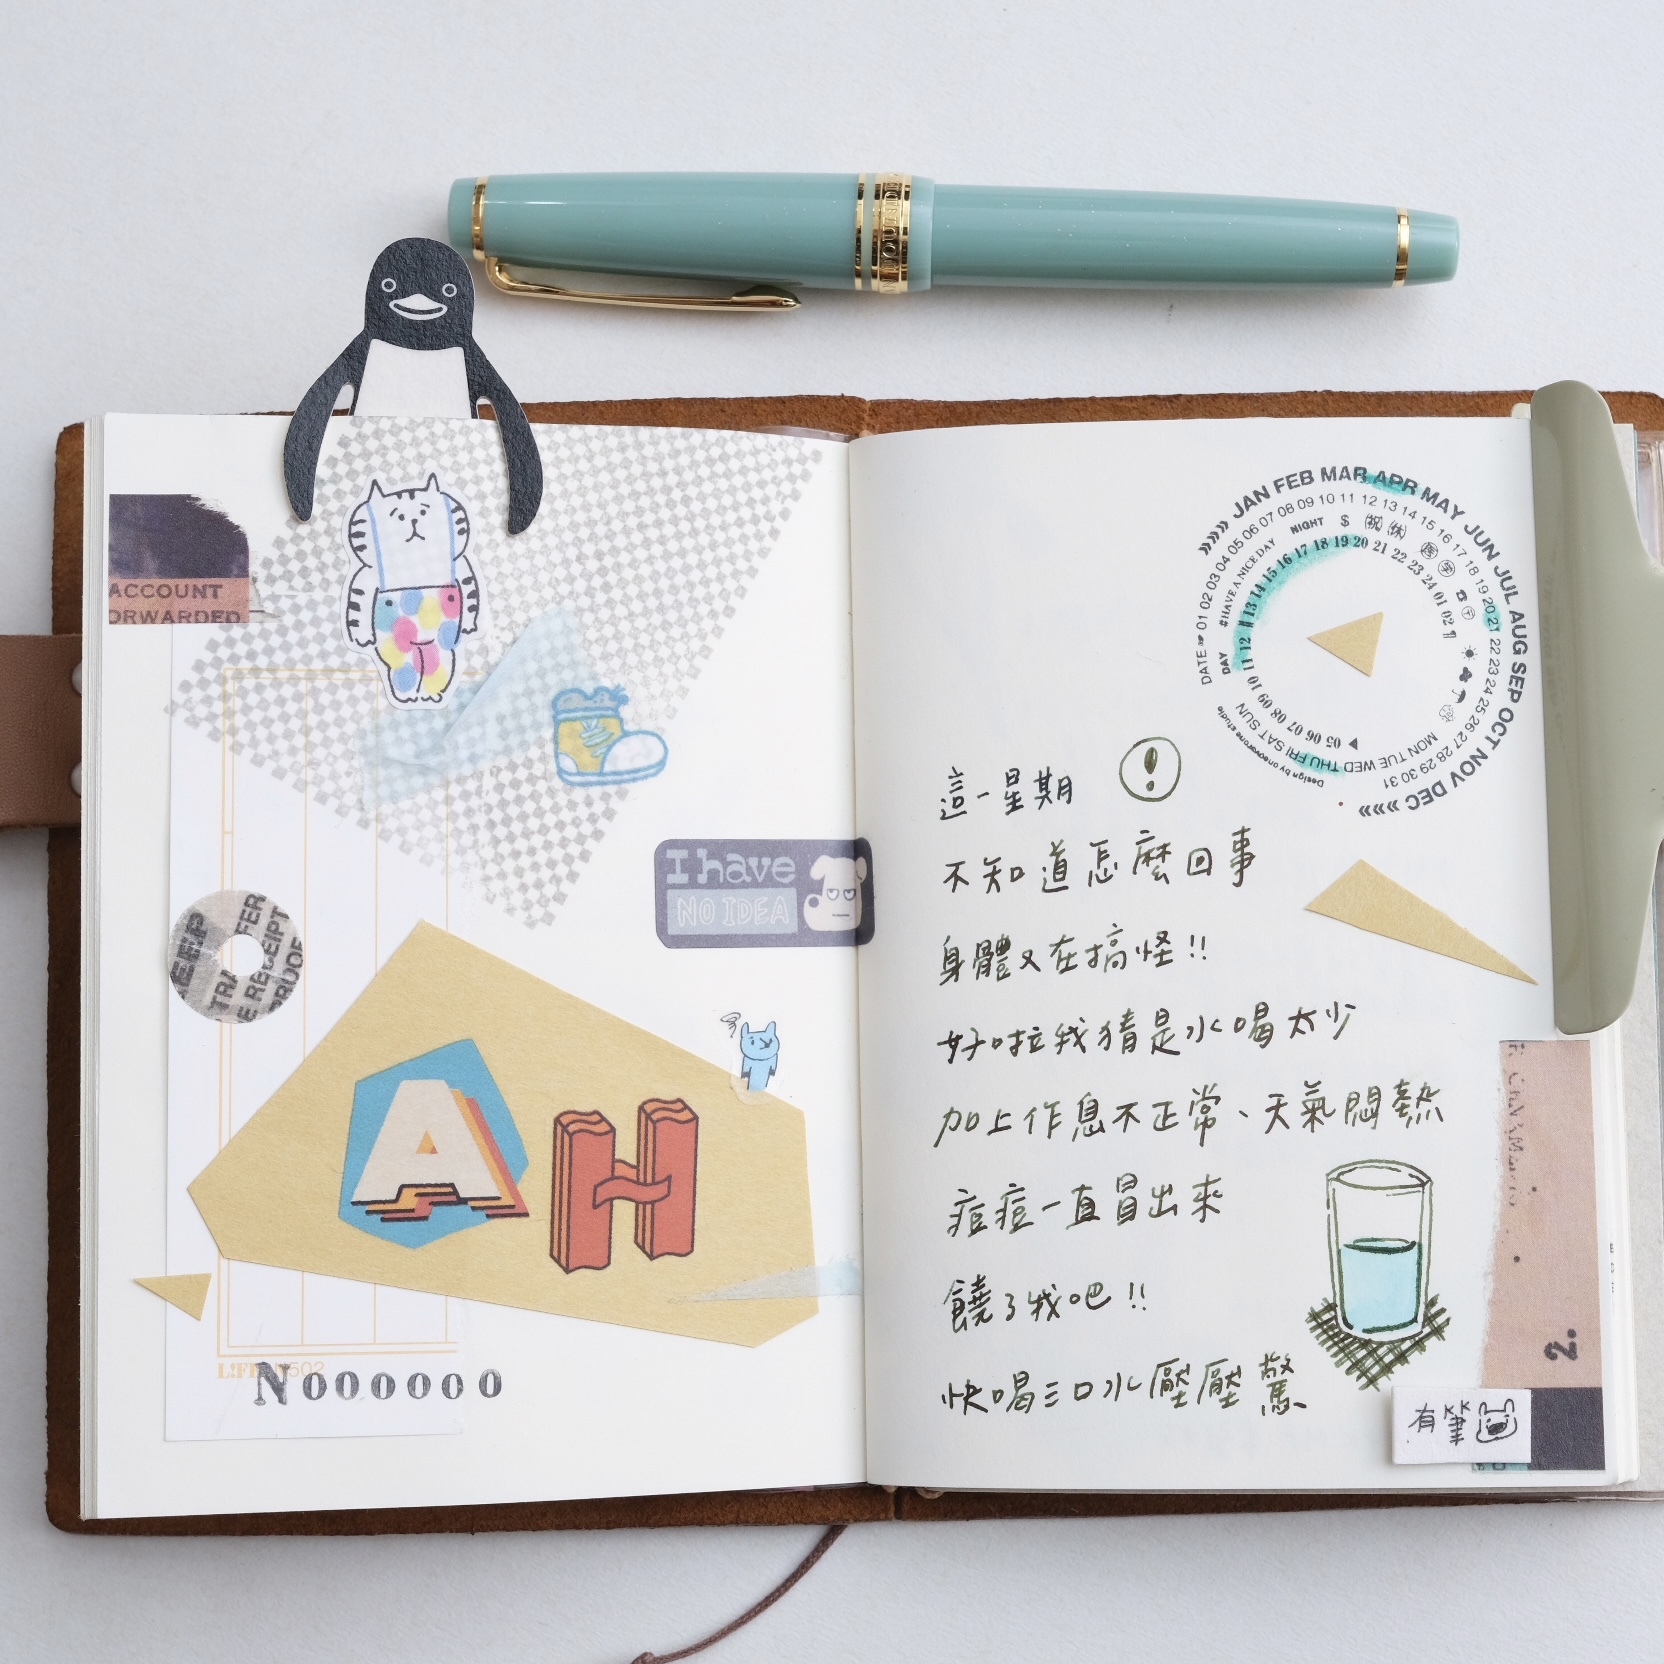 ACCOUNT
ORWARDED
I have
NO IDEA
TRA FER
E RECEIPT
AH
N000000
JAN FEB MAR APR MAY JUN JUL AUG SEP OCT NOV DEC
DATE 01 02 03 04 05 06 07 08 09 10 11 12 13 14 15 16 17 18 19 20 21 22 23 24 25 26 27 28 29 30 31
DAY #HAVE A NICE DAY NIGHT $ 祝 休
MON TUE WED THU FRI SAT SUN
05 06 07 08 09 10 11 12 13 14 15 16 17 18 19 20 21 22 23 24 01 02
Design by onesevenone studio
這一星期 !
不知道怎麼回事
身體又在搞怪!!
好啦我猜是水喝太少
加上作息不正常、天氣悶熱
痘痘一直冒出來
饒了我吧!!
快喝三口水壓壓驚
2.
有筆